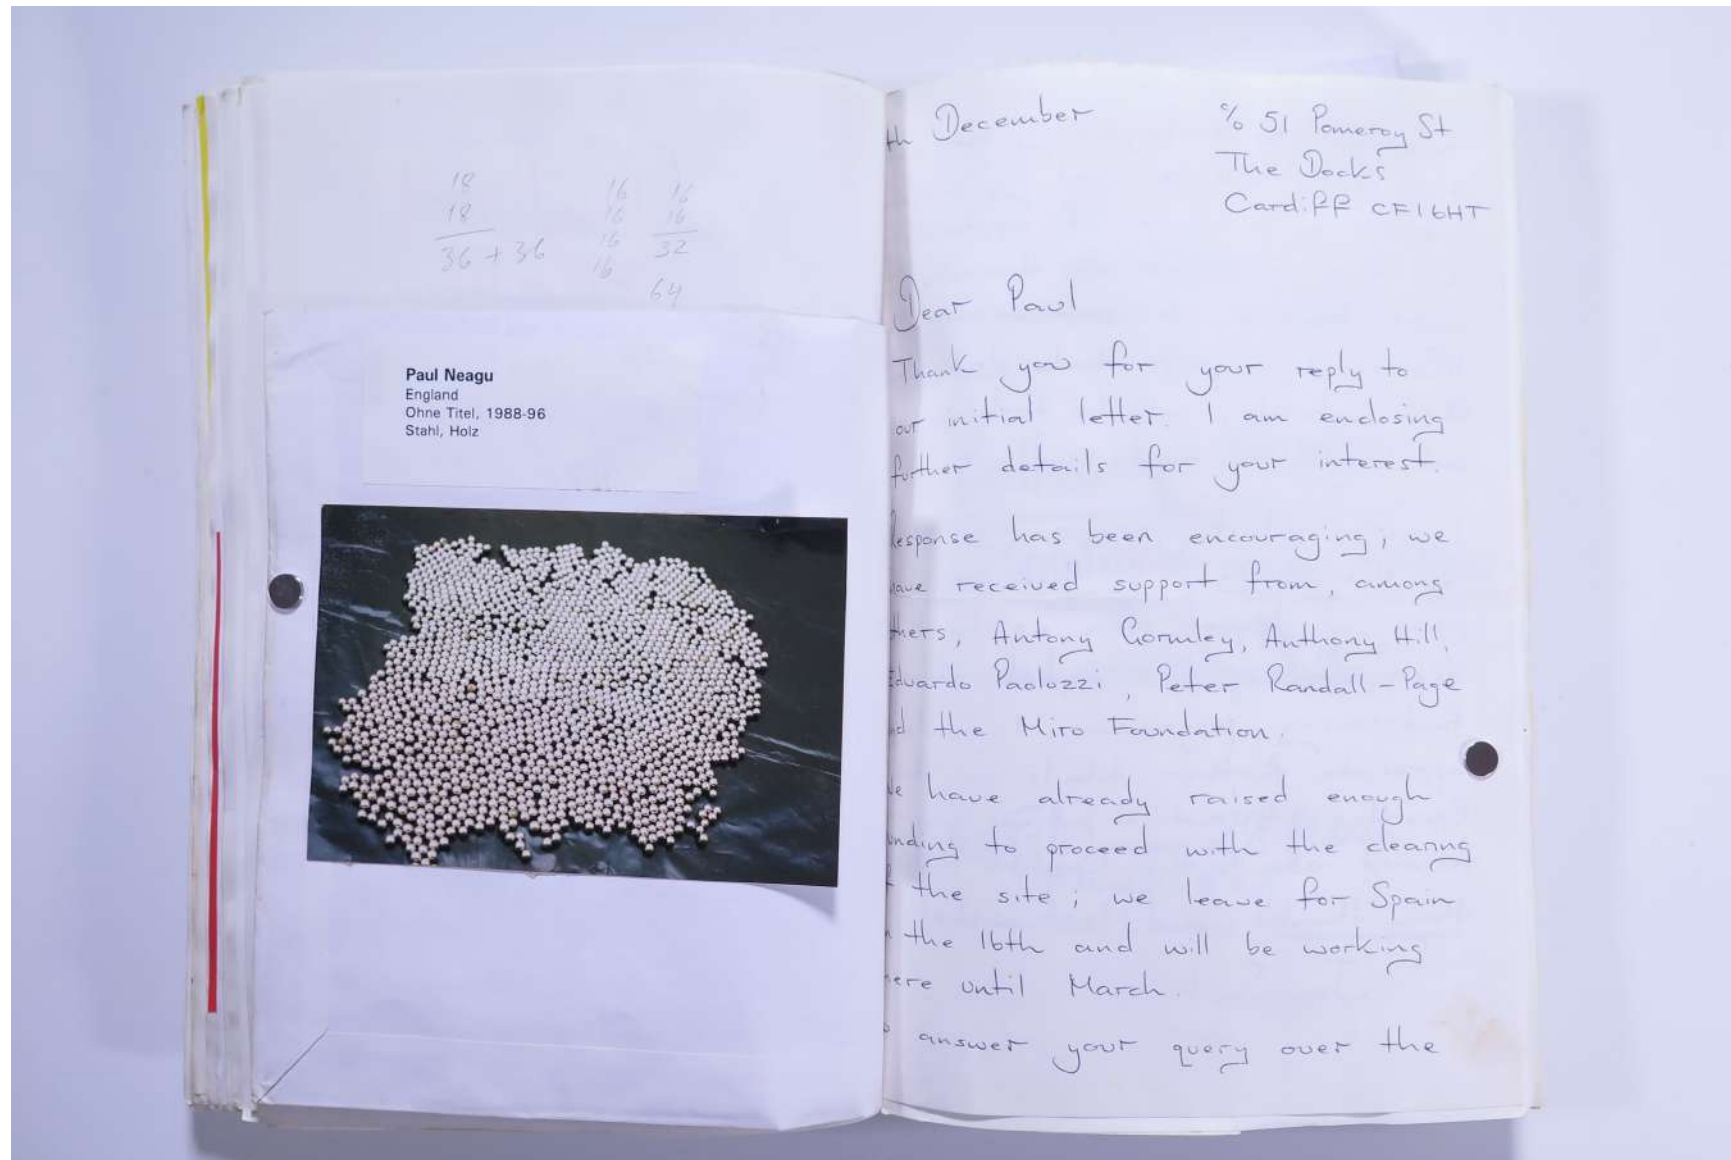 18
18
36 + 36
16
16
16
16
16
16
32
64
Paul Neagu
England
Ohne Titel, 1988-96
Stahl, Holz
th December
c/o 51 Pomeroy St
The Docks
Cardiff CF1 6HT
Dear Paul
Thank you for your reply to
our initial letter. I am enclosing
further details for your interest.
Response has been encouraging; we
have received support from, among
thers, Antony Gormley, Anthony Hill,
Eduardo Paolozzi, Peter Randall-Page
nd the Miro Foundation.
We have already raised enough
unding to proceed with the clearing
the site; we leave for Spain
the 16th and will be working
here until March.
answer your query over the